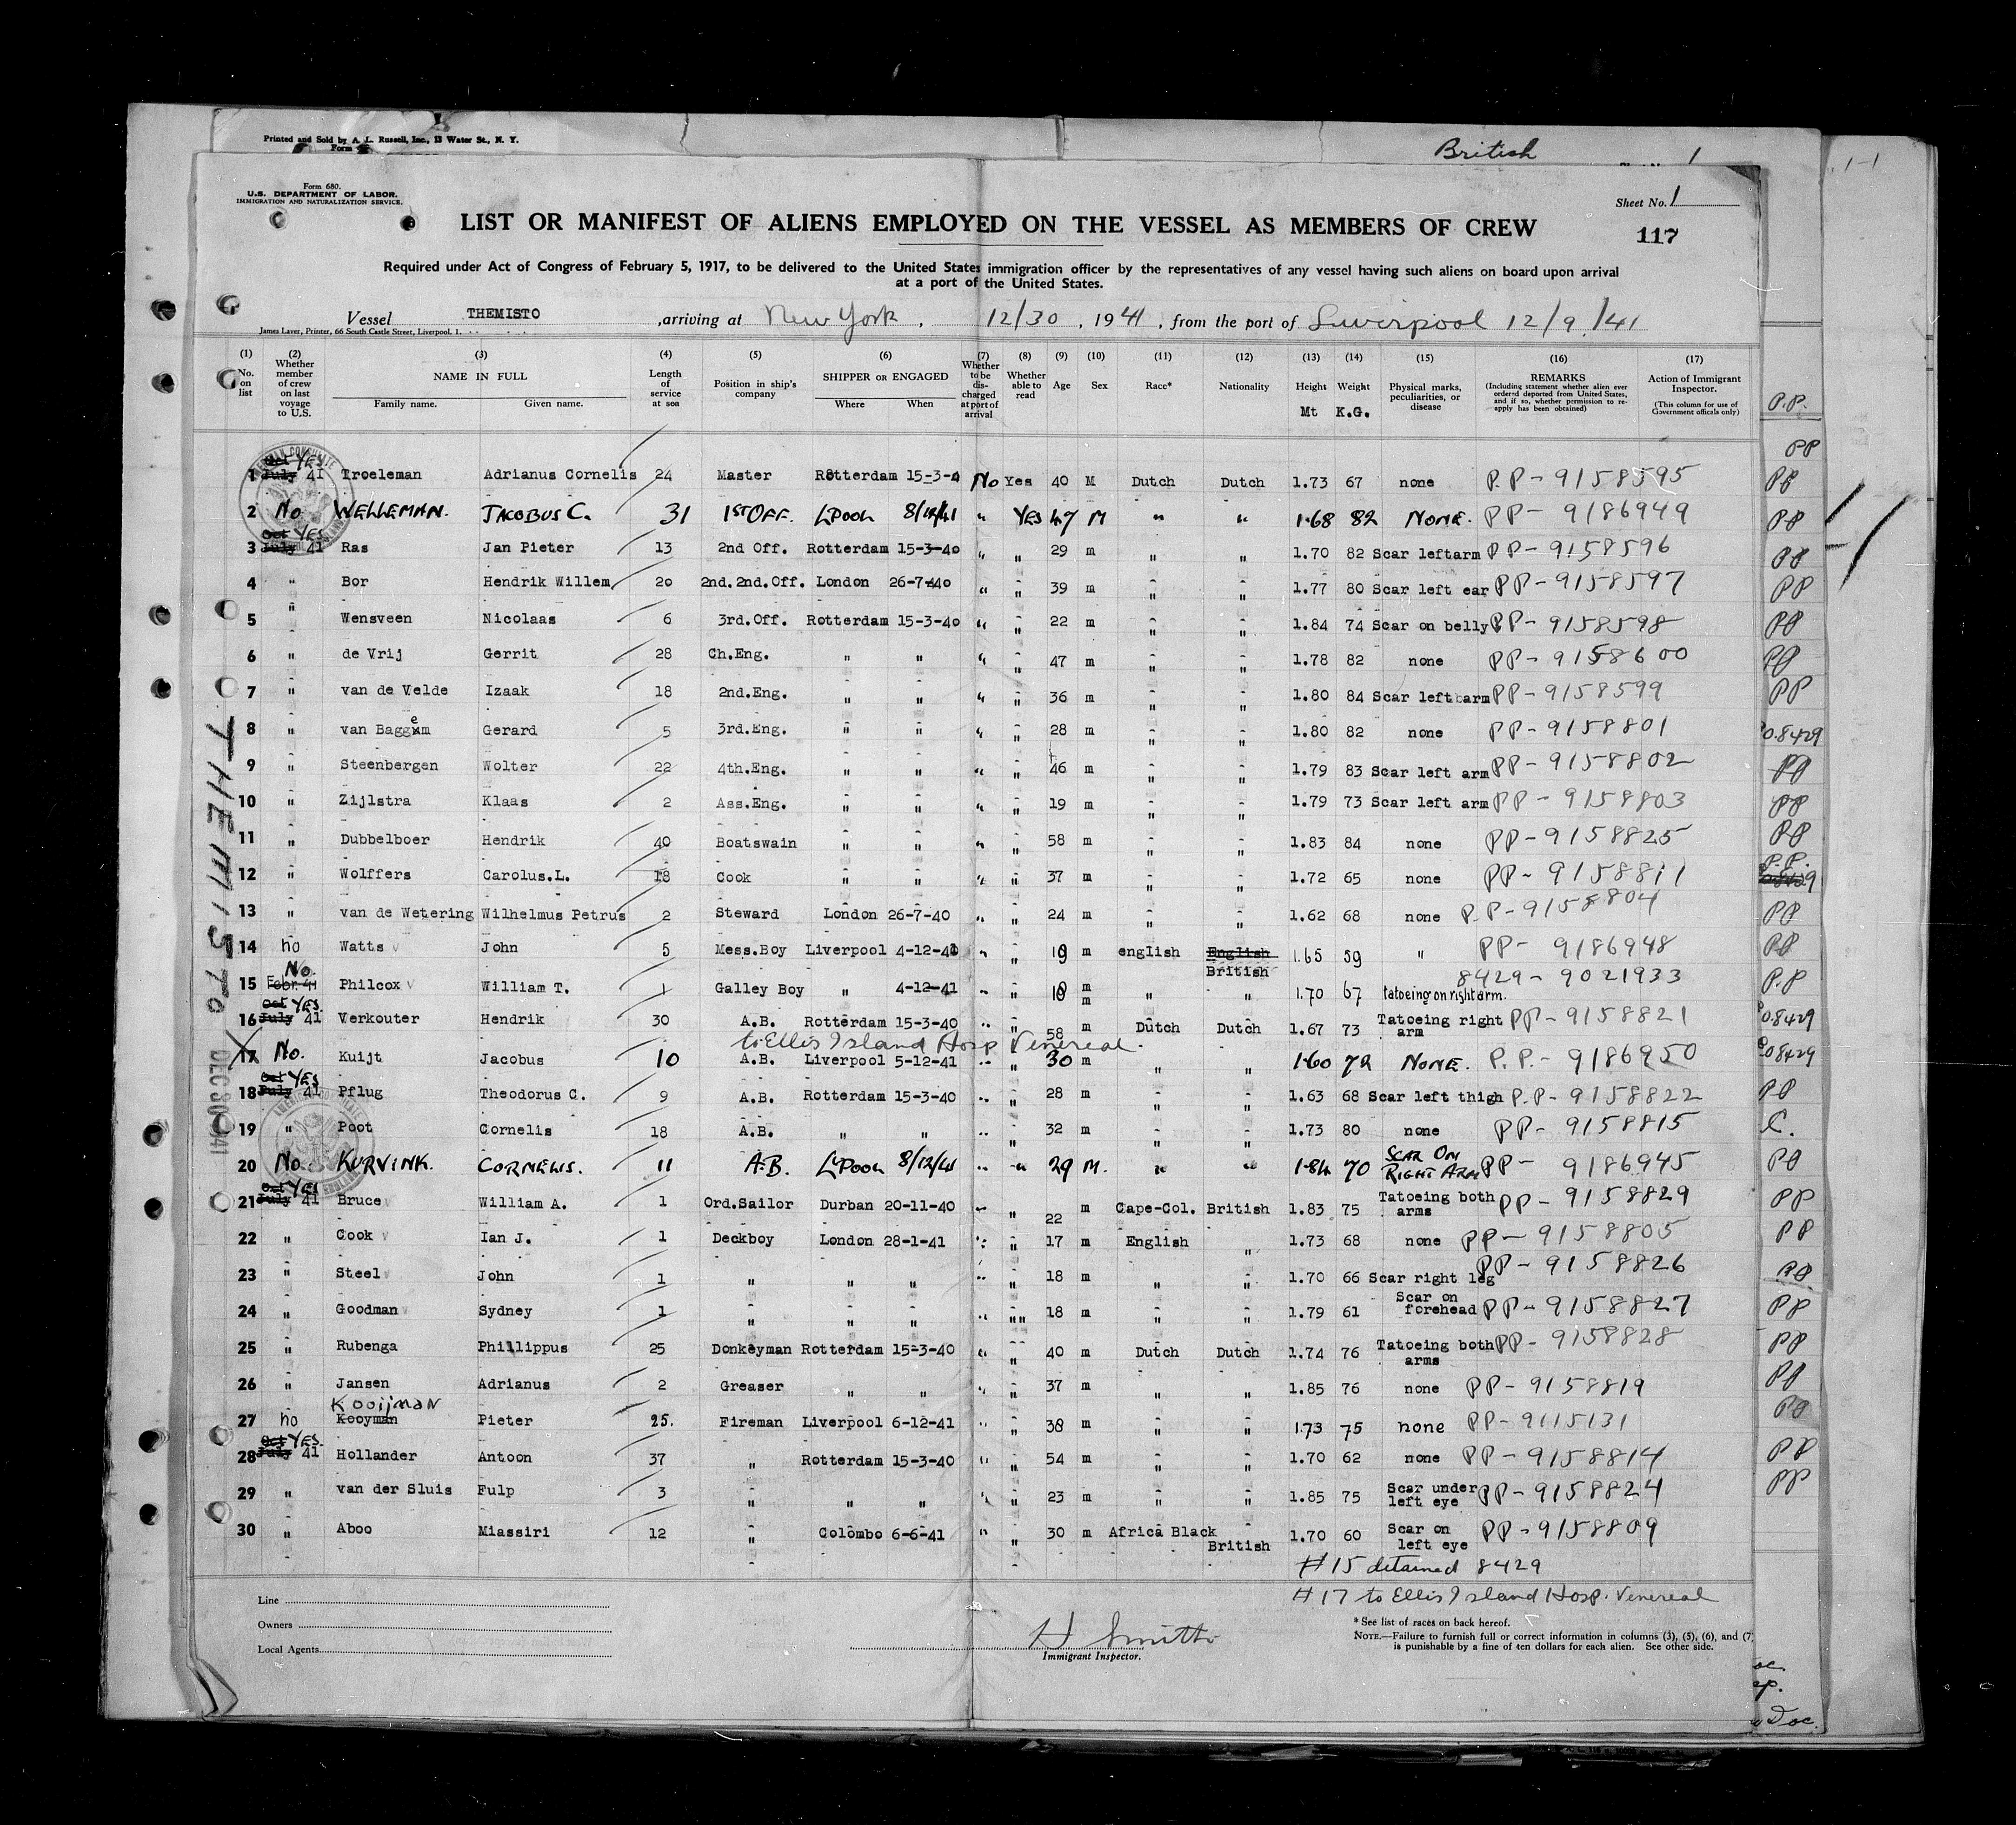 Printed and Sold by A. L. Russell, Inc., 13 Water St., N. Y.
Form
British
1
Form 680.
U.S. DEPARTMENT OF LABOR,
IMMIGRATION AND NATURALIZATION SERVICE.
Sheet No. 1
LIST OR MANIFEST OF ALIENS EMPLOYED ON THE VESSEL AS MEMBERS OF CREW
117
Required under Act of Congress of February 5, 1917, to be delivered to the United States immigration officer by the representatives of any vessel having such aliens on board upon arrival
at a port of the United States.
Vessel THEMISTO, arriving at New York, 12/30, 1941, from the port of Liverpool 12/9/41
James Laver, Printer, 66 South Castle Street, Liverpool. 1.
(1) No. on list (2) Whether member of crew on last voyage to U.S. (3) NAME IN FULL Family name. Given name. (4) Length of service at sea (5) Position in ship's company (6) SHIPPER OR ENGAGED Where When (7) Whether to be discharged at port of arrival (8) Whether able to read (9) Age (10) Sex (11) Race* (12) Nationality (13) Height Mt (14) Weight K.G. (15) Physical marks, peculiarities, or disease (16) REMARKS (Including statement whether alien ever ordered deported from United States, and if so, whether permission to re-apply has been obtained) (17) Action of Immigrant Inspector. (This column for use of Government officals only) P.P.
PP
1 Oct YES July 41 Troeleman Adrianus Cornelis 24 Master Rotterdam 15-3-4 No Yes 40 M Dutch Dutch 1.73 67 none P.P-9158595 PP
2 No WELLEMAN. JACOBUS C. 31 1ST OFF. L'POOL 8/12/41 " YES 47 M " " 1.68 82 NONE. PP- 9186949 PP
3 Oct YES July 41 Ras Jan Pieter 13 2nd Off. Rotterdam 15-3-40 " " 29 m " " 1.70 82 Scar leftarm PP-9158596 PP
4 " Bor Hendrik Willem 20 2nd.2nd.Off. London 26-7-40 " " 39 m " " 1.77 80 Scar left ear PP-9158597 PP
5 " Wensveen Nicolaas 6 3rd.Off. Rotterdam 15-3-40 " " 22 m " " 1.84 74 Scar on belly PP-9158598 PP
6 " de Vrij Gerrit 28 Ch.Eng. " " " " 47 m " " 1.78 82 none PP-9158600 PP
7 " van de Velde Izaak 18 2nd.Eng. " " " " 36 m " " 1.80 84 Scar left arm PP-9158599 PP
8 " van Baggem Gerard 5 3rd.Eng. " " " " 28 m " " 1.80 82 none PP-9158801 P.O.8429
9 " Steenbergen Wolter 22 4th.Eng. " " " " 46 m " " 1.79 83 Scar left arm PP-9158802 PP
10 " Zijlstra Klaas 2 Ass.Eng. " " " " 19 m " " 1.79 73 Scar left arm PP-9158803 PP
11 " Dubbelboer Hendrik 40 Boatswain " " " " 58 m " " 1.83 84 none PP-9158825 PP
12 " Wolffers Carolus.L. 18 Cook " " " " 37 m " " 1.72 65 none PP-9158811 P.P. 08429
13 " van de Wetering Wilhelmus Petrus 2 Steward London 26-7-40 " " 24 m " " 1.62 68 none P.P-9158804 PP
14 no Watts John 5 Mess.Boy Liverpool 4-12-41 " " 19 m english English British 1.65 59 " PP- 9186948 PP
15 No. Febr.41 Philcox William T. 1 Galley Boy " 4-12-41 " " 18 m " " 1.70 67 tatoeing on right arm. 8429-9021933 P.P
16 Oct YES July 41 Verkouter Hendrik 30 A.B. Rotterdam 15-3-40 " " 58 m Dutch Dutch 1.67 73 Tatoeing right arm PP-9158821 P.O.8429
to Ellis Island Hosp Venereal
17 No. Kuijt Jacobus 10 A.B. Liverpool 5-12-41 " " 30 m " " 1.60 72 NONE. P.P.-9186950 P.O.8429
18 Oct YES July 41 Pflug Theodorus C. 9 A.B. Rotterdam 15-3-40 " " 28 m " " 1.63 68 Scar left thigh P.P-9158822 PP
19 " Poot Cornelis 18 A.B. " " " " 32 m " " 1.73 80 none PP-9158815 C.
20 No. KURVINK. CORNELIS. 11 A.B. L'POOL 8/12/41 " " 29 M. " " 1.84 70 SCAR ON RIGHT ARM PP- 9186945 PP
21 Oct YES July 41 Bruce William A. 1 Ord.Sailor Durban 20-11-40 " " 22 m Cape-Col. British 1.83 75 Tatoeing both arms PP-9158829 PP
22 " Cook Ian J. 1 Deckboy London 28-1-41 " " 17 m English " 1.73 68 none PP-9158805 PP
23 " Steel John 1 " " " " " 18 m " " 1.70 66 Scar right leg PP-9158826 PP
24 " Goodman Sydney 1 " " " " "" 18 m " " 1.79 61 Scar on forehead PP-9158827 PP
25 " Rubenga Phillippus 25 Donkeyman Rotterdam 15-3-40 " " 40 m Dutch Dutch 1.74 76 Tatoeing both arms PP-9158828 PP
26 " Jansen Adrianus 2 Greaser " " " " 37 m " " 1.85 76 none PP-9158819 PP
Kooijman
27 no Kooyman Pieter 25. Fireman Liverpool 6-12-41 " " 38 m " " 1.73 75 none PP-9115131 PP
28 Oct YES. July 41 Hollander Antoon 37 " Rotterdam 15-3-40 " " 54 m " " 1.70 62 none PP-9158814 PP
29 " van der Sluis Fulp 3 " " " " " 23 m " " 1.85 75 Scar under left eye PP-9158824 PP
30 " Aboo Miassiri 12 " Colombo 6-6-41 " " 30 m Africa Black British 1.70 60 Scar on left eye PP-9158809
THEMISTO
DEC 30 1941
#15 detained 8429
#17 to Ellis Island Hosp. Venereal
Line
Owners
Local Agents
H Smith
Immigrant Inspector.
* See list of races on back hereof.
NOTE.—Failure to furnish full or correct information in columns (3), (5), (6), and (7)
is punishable by a fine of ten dollars for each alien. See other side.
Doc.